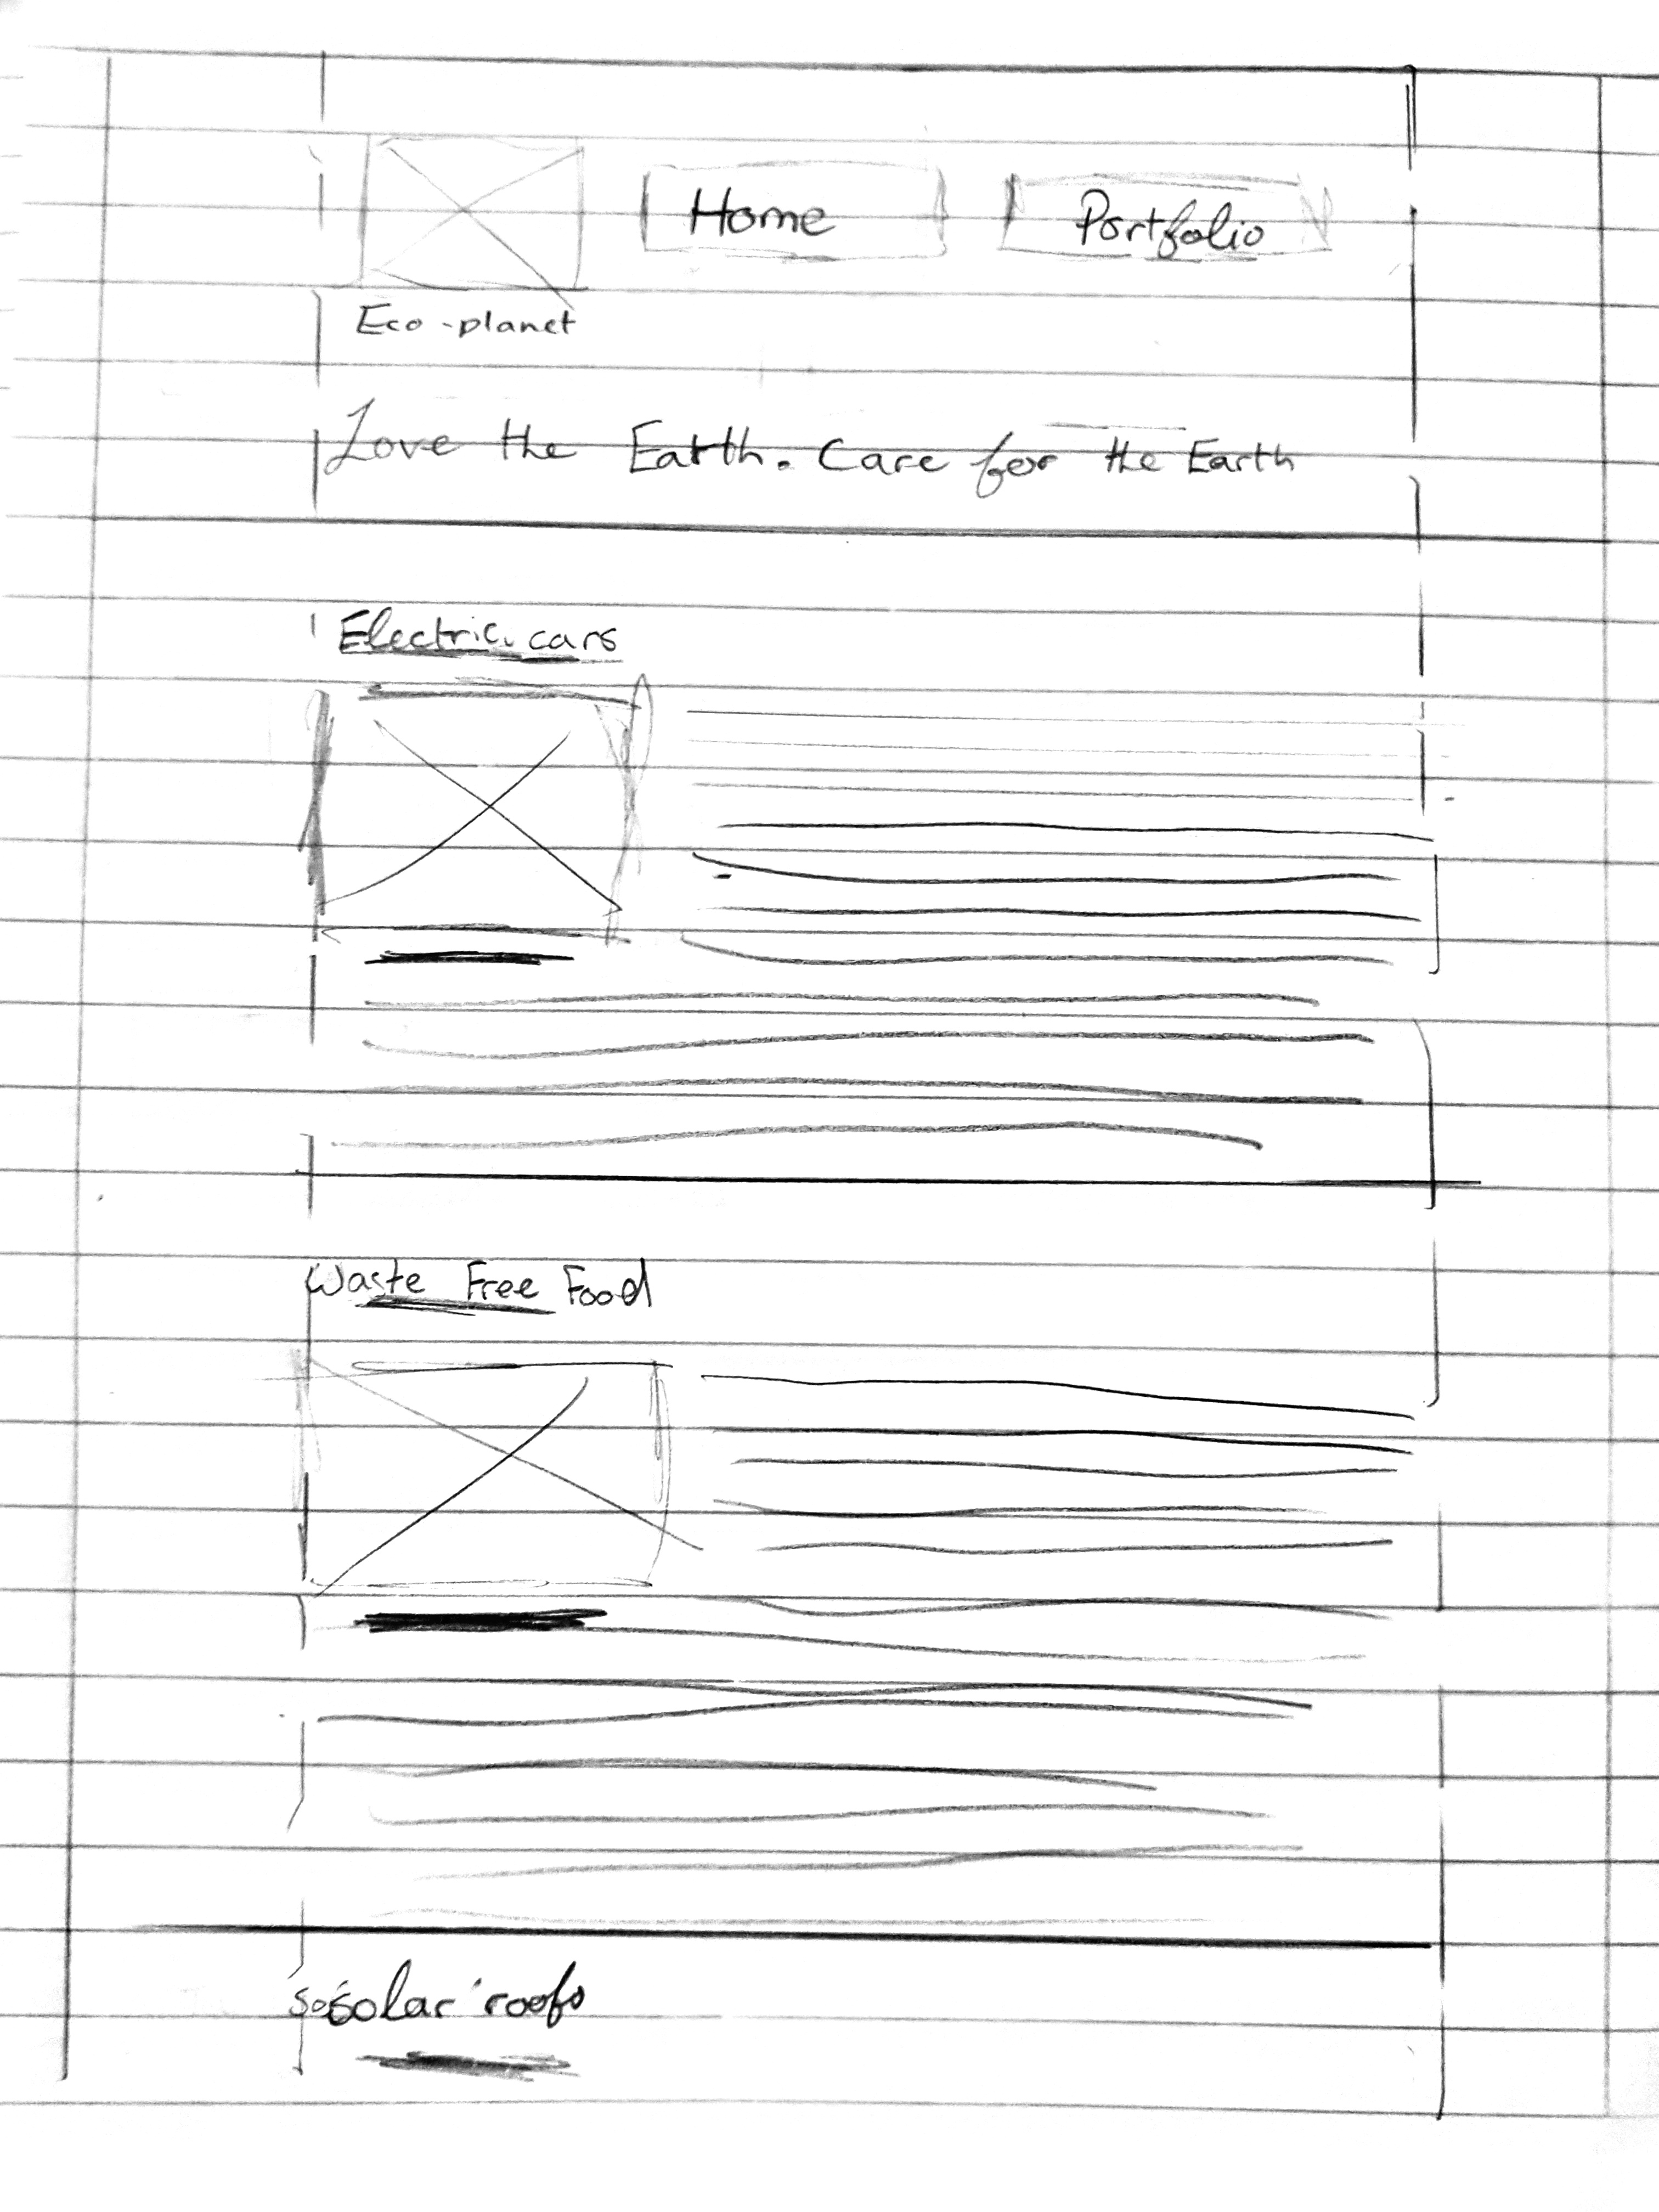 Home
Portfolio
Eco-planet
Love the Earth. Care for the Earth
Electric cars
Waste Free Food
solar roofs